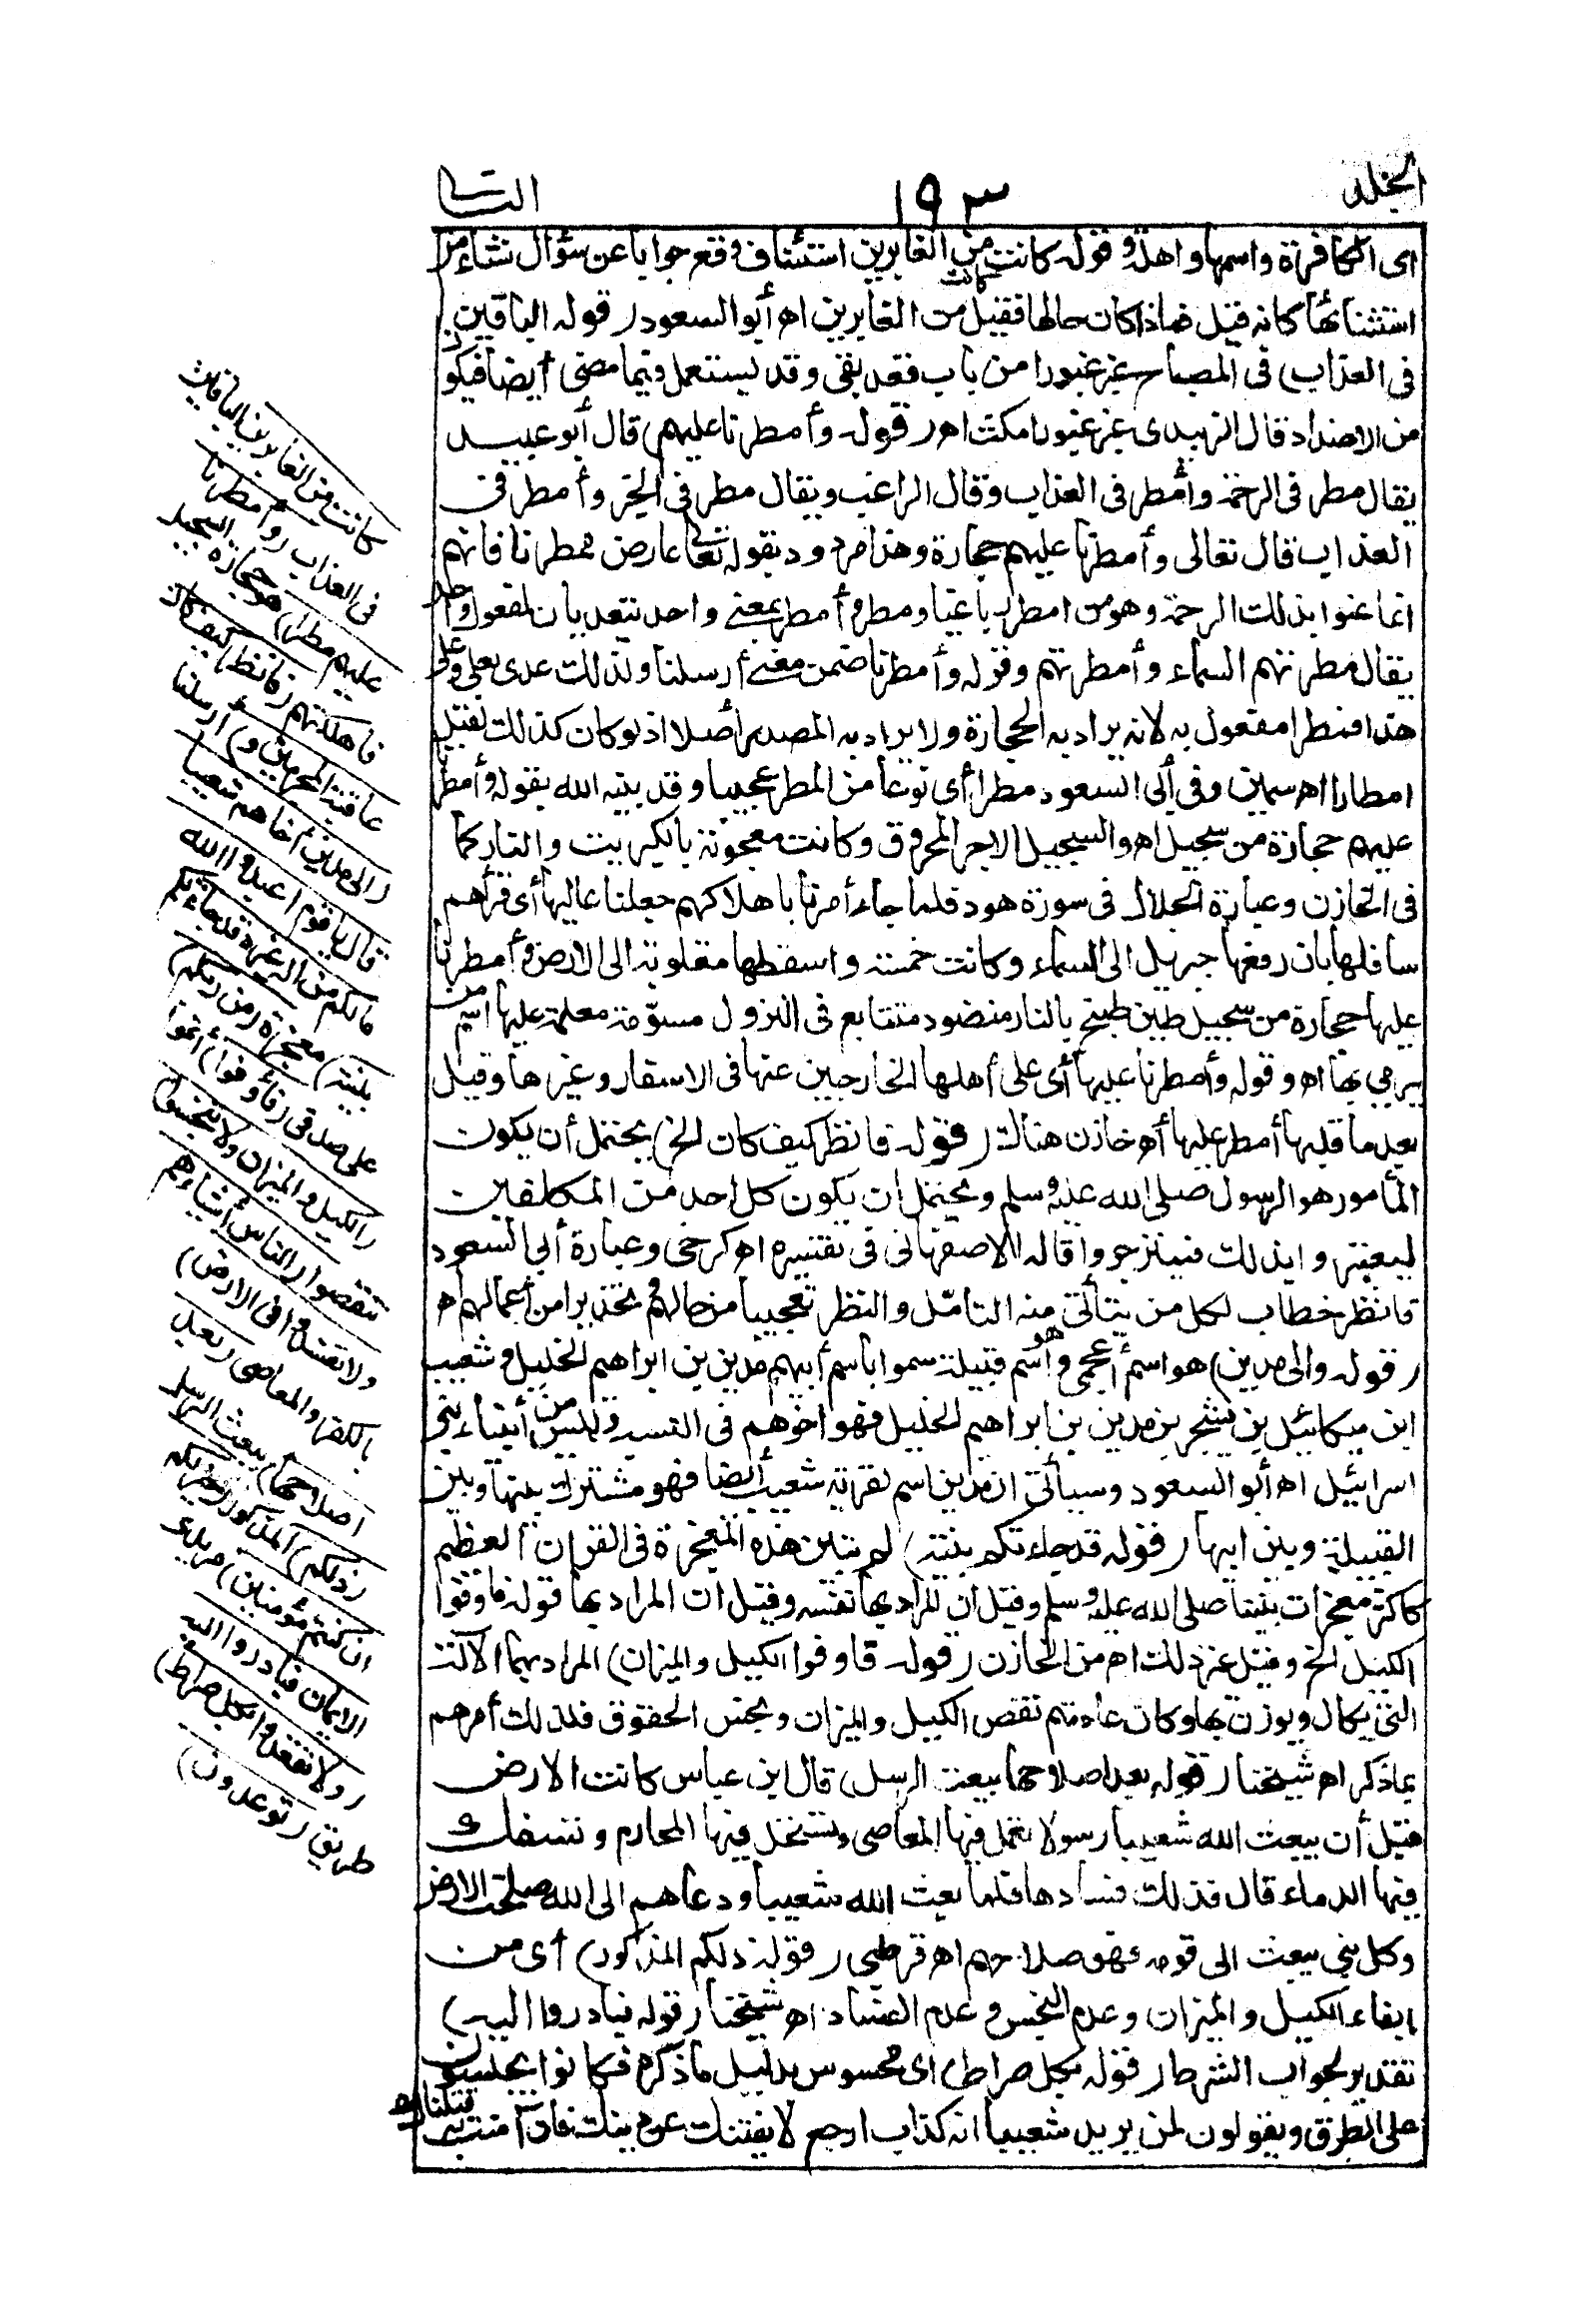 الجلد
١٩٣
الثا
اى الكافرة واسمها واهلة وقوله كانت من الغابرين استئناف وقع جوابا عن سؤال نشاء من
استثنائها كانه قيل فماذا كان حالها فقيل كانت من الغابرين اه أبو السعود (قوله الباقين
فى العذاب) فى المصباح غبر غبورا من باب قعد بقى وقد يستعمل فيما مضى أيضا فيكون
من الاضداد قال الزبيدى غبر غبورا مكث اه (قوله وأمطرنا عليهم) قال أبو عبيد
يقال مطر فى الرحمة وأمطر فى العذاب وقال الراغب ويقال مطر فى الخير وأمطر فى
العذاب قال تعالى وأمطرنا عليهم حجارة وهذا مردود بقوله تعالى عارض ممطرنا فانهم
انما عنوا بذلك الرحمة وهو من امطر رباعيا ومطر وأمطر بمعنى واحد يتعديان لمفعول واحد
يقال مطرتهم السماء وأمطرتهم وقوله وأمطرنا ضمن معنى أرسلنا ولذلك عدى بعلى وعلى
هذا فمطرا مفعول به لانه يراد به الحجارة ولا يراد به المصدر أصلا اذ لو كان كذلك لقيل
امطارا اه سمين وفى أبى السعود مطرا أى نوعا من المطر عجيبا وقد بينه الله بقوله وأمطرنا
عليهم حجارة من سجيل اه والسجيل الاجر المحروق وكانت معجونة بالكبريت والنار كما
فى الخازن وعبارة الجلال فى سورة هود فلما جاء أمرنا باهلاكهم جعلنا عاليها أى قراهم
سافلها بان رفعها جبريل الى السماء وكانت خمسة واسقطها مقلوبة الى الارض وأمطرنا
عليها حجارة من سجيل طين طبخ بالنار منضود متتابع فى النزول مسوّمة معلمة عليها اسم من
يرمى بها اه وقوله وأمطرنا عليها أى على أهلها الخارجين عنها فى الاسفار وغيرها وقيل
بعد ما قلبها أمطر عليها اه خازن هناك (قوله فانظر كيف كان الخ) يحتمل أن يكون
المأمور هو الرسول صلى الله عليه وسلم ويحتمل ان يكون كل احد من المكلفين
ليعتبروا بذلك فينزجروا قاله الاصفهانى فى تفسيره اه كرخى وعبارة أبى السعود
فانظر خطاب لكل من يتأتى منه التأمّل والنظر تعجيبا من حالهم وتحذيرا من أعمالهم اه
(قوله والى مدين) هو اسم أعجمى وهو اسم قبيلة سموا باسم أبيهم مدين بن ابراهيم الخليل وشعيب
ابن ميكائيل بن يشجر بن مدين بن ابراهيم الخليل فهو اخوهم فى النسب وليس من أنبياء بنى
اسرائيل اه أبو السعود وسيأتى ان مدين اسم لقرية شعيب أيضا فهو مشترك بينها وبين
القبيلة وبين ابيها (قوله قد جاءتكم بينة) لم يتبين هذه المعجزة فى القران العظيم
كاكثر معجزات نبينا صلى الله عليه وسلم وقيل ان المراد بها نفسه وقيل ان المراد بها قوله فاوفوا
الكيل الخ وقيل غير ذلك اه من الخازن (قوله فاوفوا الكيل والميزان) المراد بهما الآلة
التى يكال ويوزن بها وكان عادتهم نقص الكيل والميزان وبخس الحقوق فلذلك أمرهم
بما ذكر اه شيخنا (قوله بعد اصلاحها ببعث الرسل) قال ابن عباس كانت الارض
قبل أن يبعث الله شعيبا رسولا تعمل فيها المعاصى وتستحل فيها المحارم وتسفك
فيها الدماء قال فذلك فسادها فلما بعث الله شعيبا ودعاهم الى الله صلحت الارض
وكل نبى يبعث الى قومه فهو صلاحهم اه قرطبى (قوله ذلكم المذكور) أى من
ايفاء الكيل والميزان وعدم البخس وعدم الفساد اه شيخنا (قوله فبادروا اليه)
تقدير لجواب الشرط (قوله بكل صراط) اى محسوس بدليل ما ذكره فكانوا يجلسون
على الطرق ويقولون لمن يريد شعيبا انه كذاب ارجع لا يفتنك عن دينك فان آمنت به قتلناك اه
كانت من الغابرين الباقين
فى العذاب (وأمطرنا
عليهم مطرا) هو حجارة السجيل
فاهلكتهم (فانظر كيف كان
عاقبة المجرمين و) أرسلنا
(الى مدين أخاهم شعيبا
قال يا قوم اعبدوا الله
مالكم من اله غيره قد جاءتكم
بينة) معجزة (من ربكم)
على صدقى (فأوفوا) أتموا
(الكيل والميزان ولا تبخسوا)
تنقصوا (الناس أشياءهم
ولا تفسدوا فى الارض)
بالكفر والمعاصى (بعد
اصلاحها) ببعث الرسل
(ذلكم) المذكور (خير لكم
ان كنتم مؤمنين) مريدى
الايمان فبادروا اليه
(ولا تقعدوا بكل صراط)
طريق (توعدون)